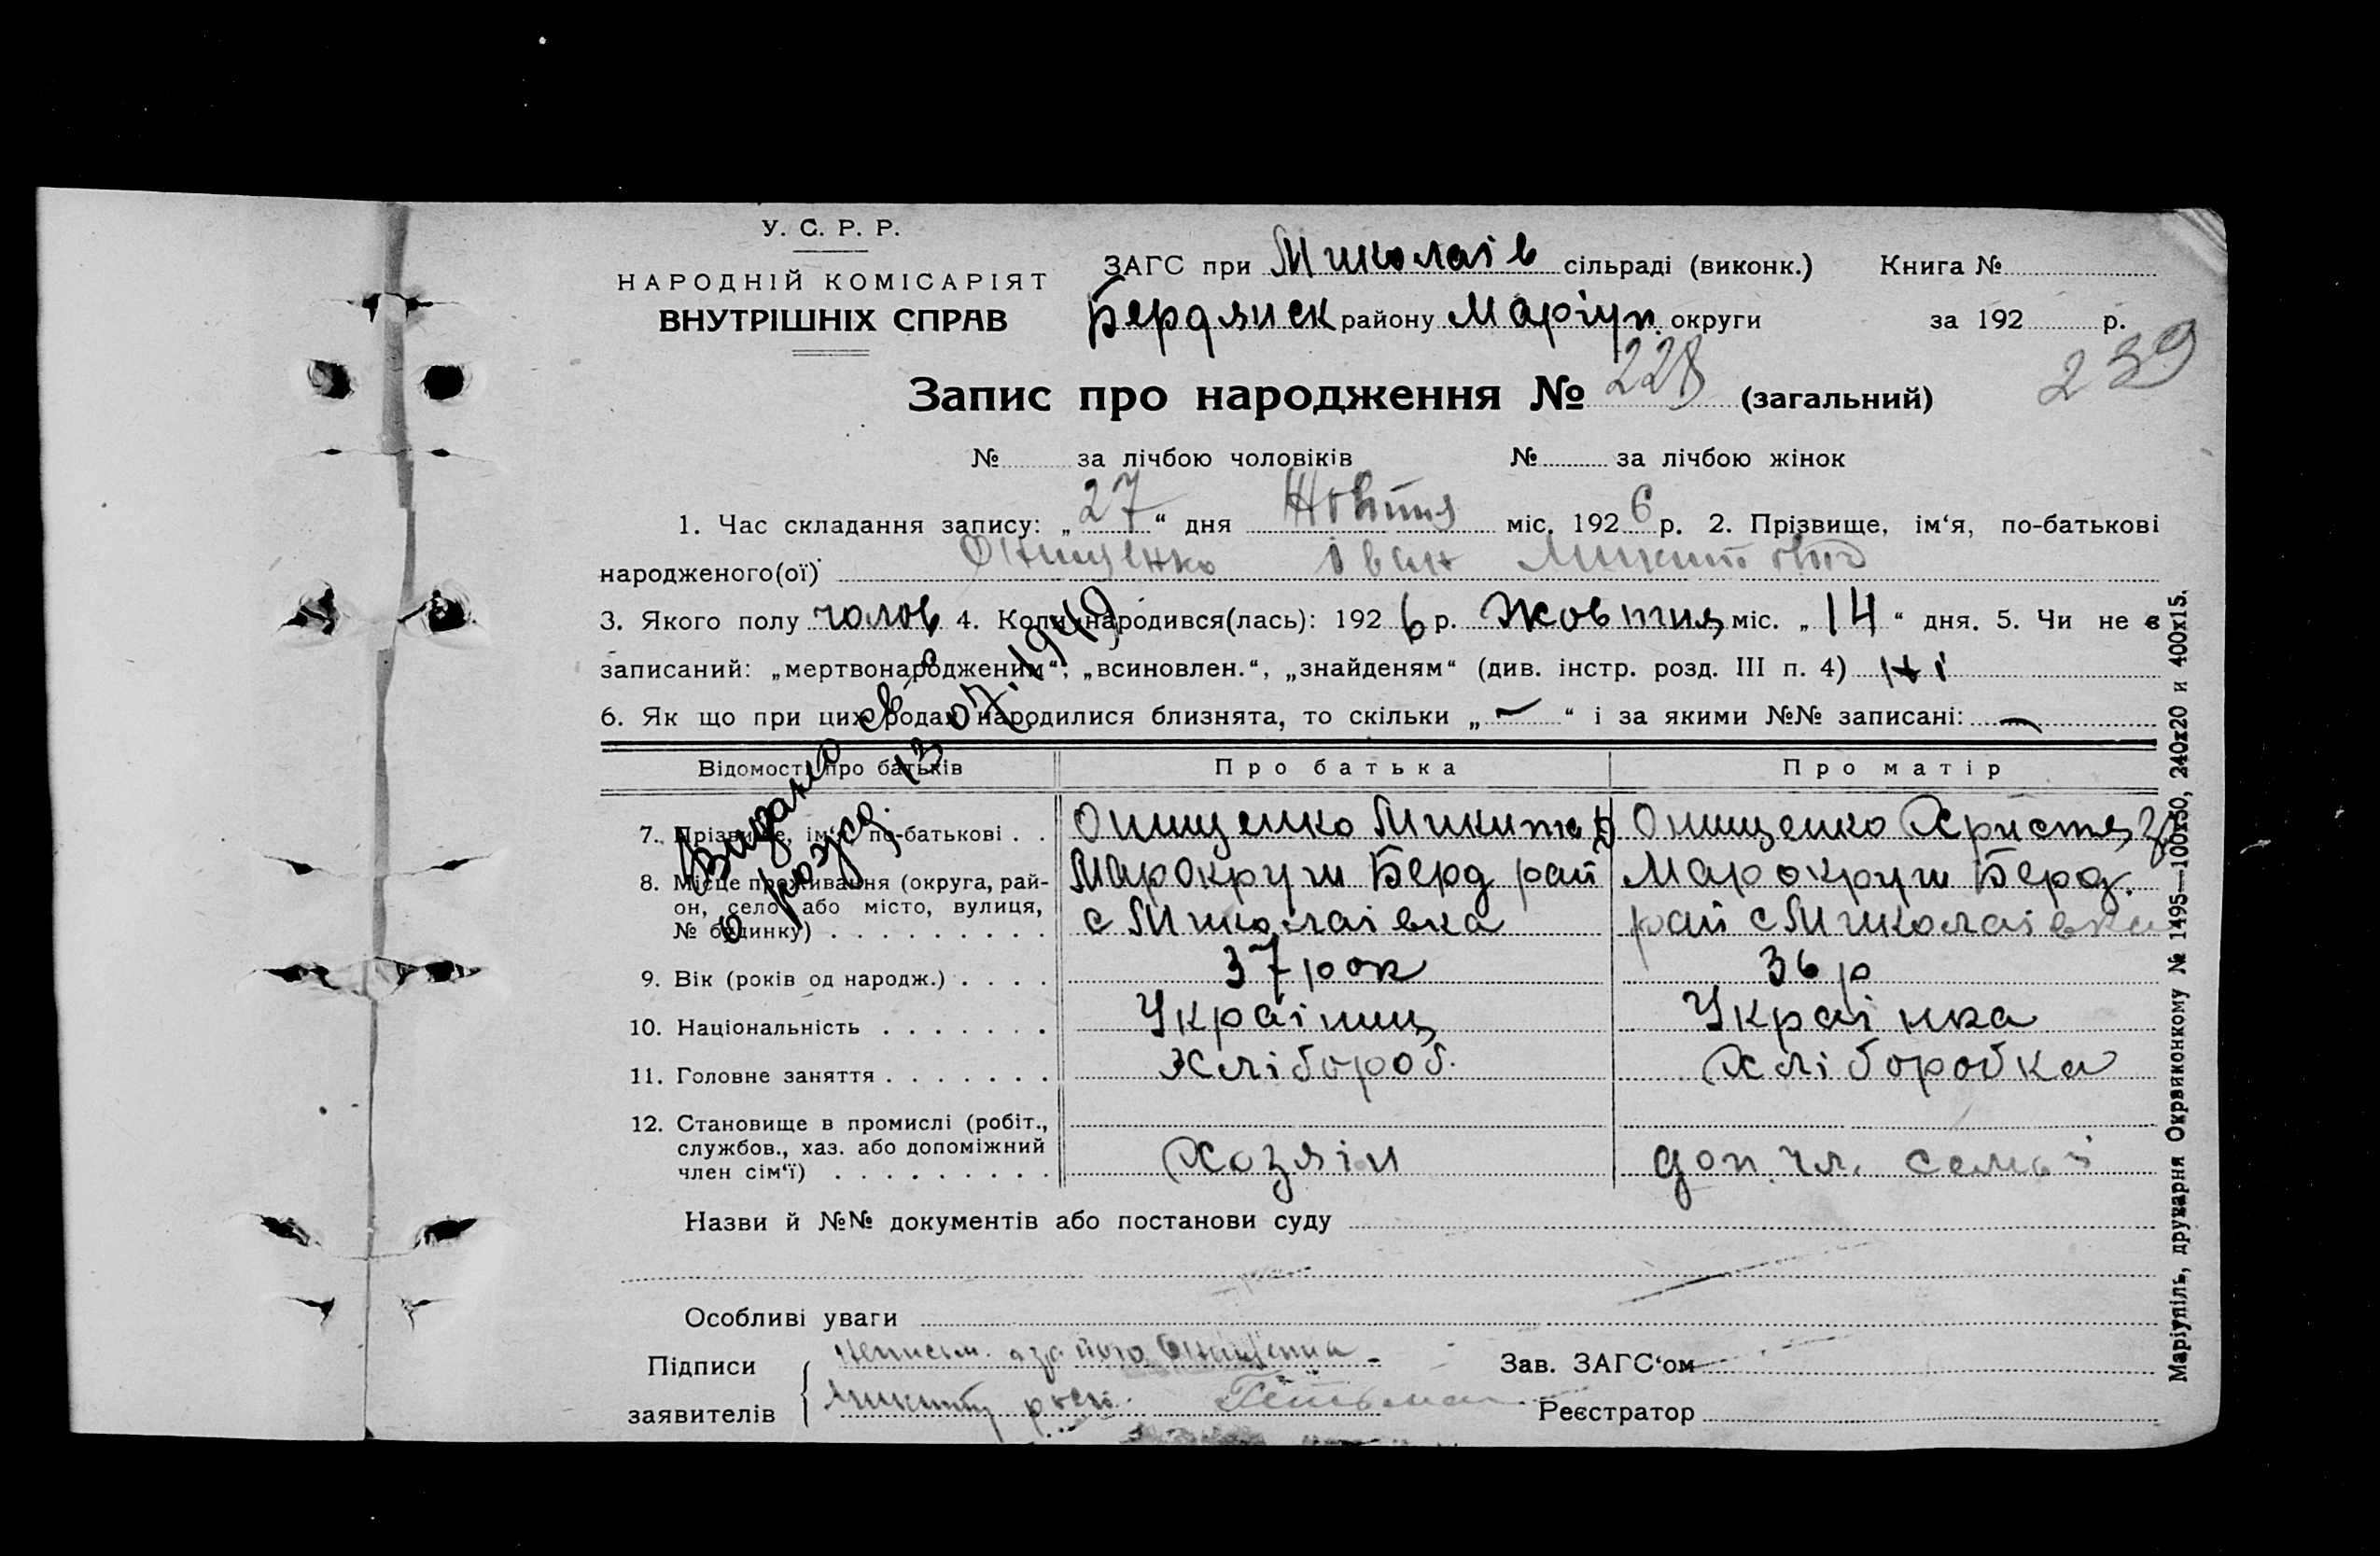 У. С. Р. Р.
НАРОДНІЙ КОМІСАРІЯТ
ВНУТРІШНІХ СПРАВ
ЗАГС при Миколаів сільраді (виконк.) Книга №
Бердянск району Маріуп. округи за 192 р.
239
Запис про народження № 228 (загальний)
№ за лічбою чоловіків № за лічбою жінок
1. Час складання запису: „27“ дня Жовтня міс. 1926 р. 2. Прізвище, ім‘я, по-батькові
народженого(ої) Онищенко Іван Микитович
3. Якого полу чолов 4. Коли народився(лась): 1926 р. Жовтня міс. „14“ дня. 5. Чи не є
записаний: „мертвонародженим“, „всиновлен.“, „знайденям“ (див. інстр. розд. III п. 4) Ні
6. Як що при цих родах народилися близнята, то скільки „—“ і за якими №№ записані: —
Видано св-о
о рожд. 13.07.1949
Відомості про батьків Про батька Про матір
7. Прізвище, ім‘я, по-батькові . . Онищенко Микита Онищенко Христя
8. Місце проживання (округа, рай- Марокруги Берд рай Марокруги Берд.
он, село або місто, вулиця, с Миколаівка рай с Миколаівка
№ будинку) . . . . . . . . .
9. Вік (років од народж.) . . . . 37 рок 36 р
10. Національність . . . . . . . Украіниц Украінка
11. Головне заняття . . . . . . . Хлібороб. Хліборобка
12. Становище в промислі (робіт.,
службов., хаз. або допоміжний Хозяін доп. чл. семьі
член сім‘ї) . . . . . . . . .
Назви й №№ документів або постанови суду
Особливі уваги
Підписи неписьм. а за його Онищенка Зав. ЗАГС‘ом
заявителів Микиту росп. Гетьман Реєстратор
Маріупіль, друкарня Окрвиконкому № 1495—100х50, 240х20 и 400х15.